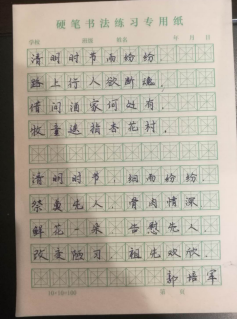 硬笔书法练习专用纸
学校 班级 姓名 年 月 日
清明时节雨纷纷,
路上行人欲断魂,
借问酒家何处有,
牧童遥指杏花村.
清明时节,细雨纷纷,
祭奠先人 骨肉情深
鲜花一束 告慰先人.
改变陋习 祖先欢欣.
郭培军
10×10=100 第 页